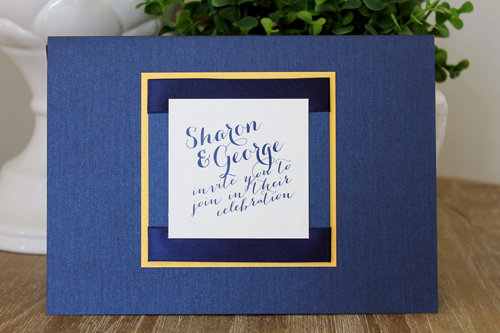 Sharon
& George
invite you to
join in their
celebration